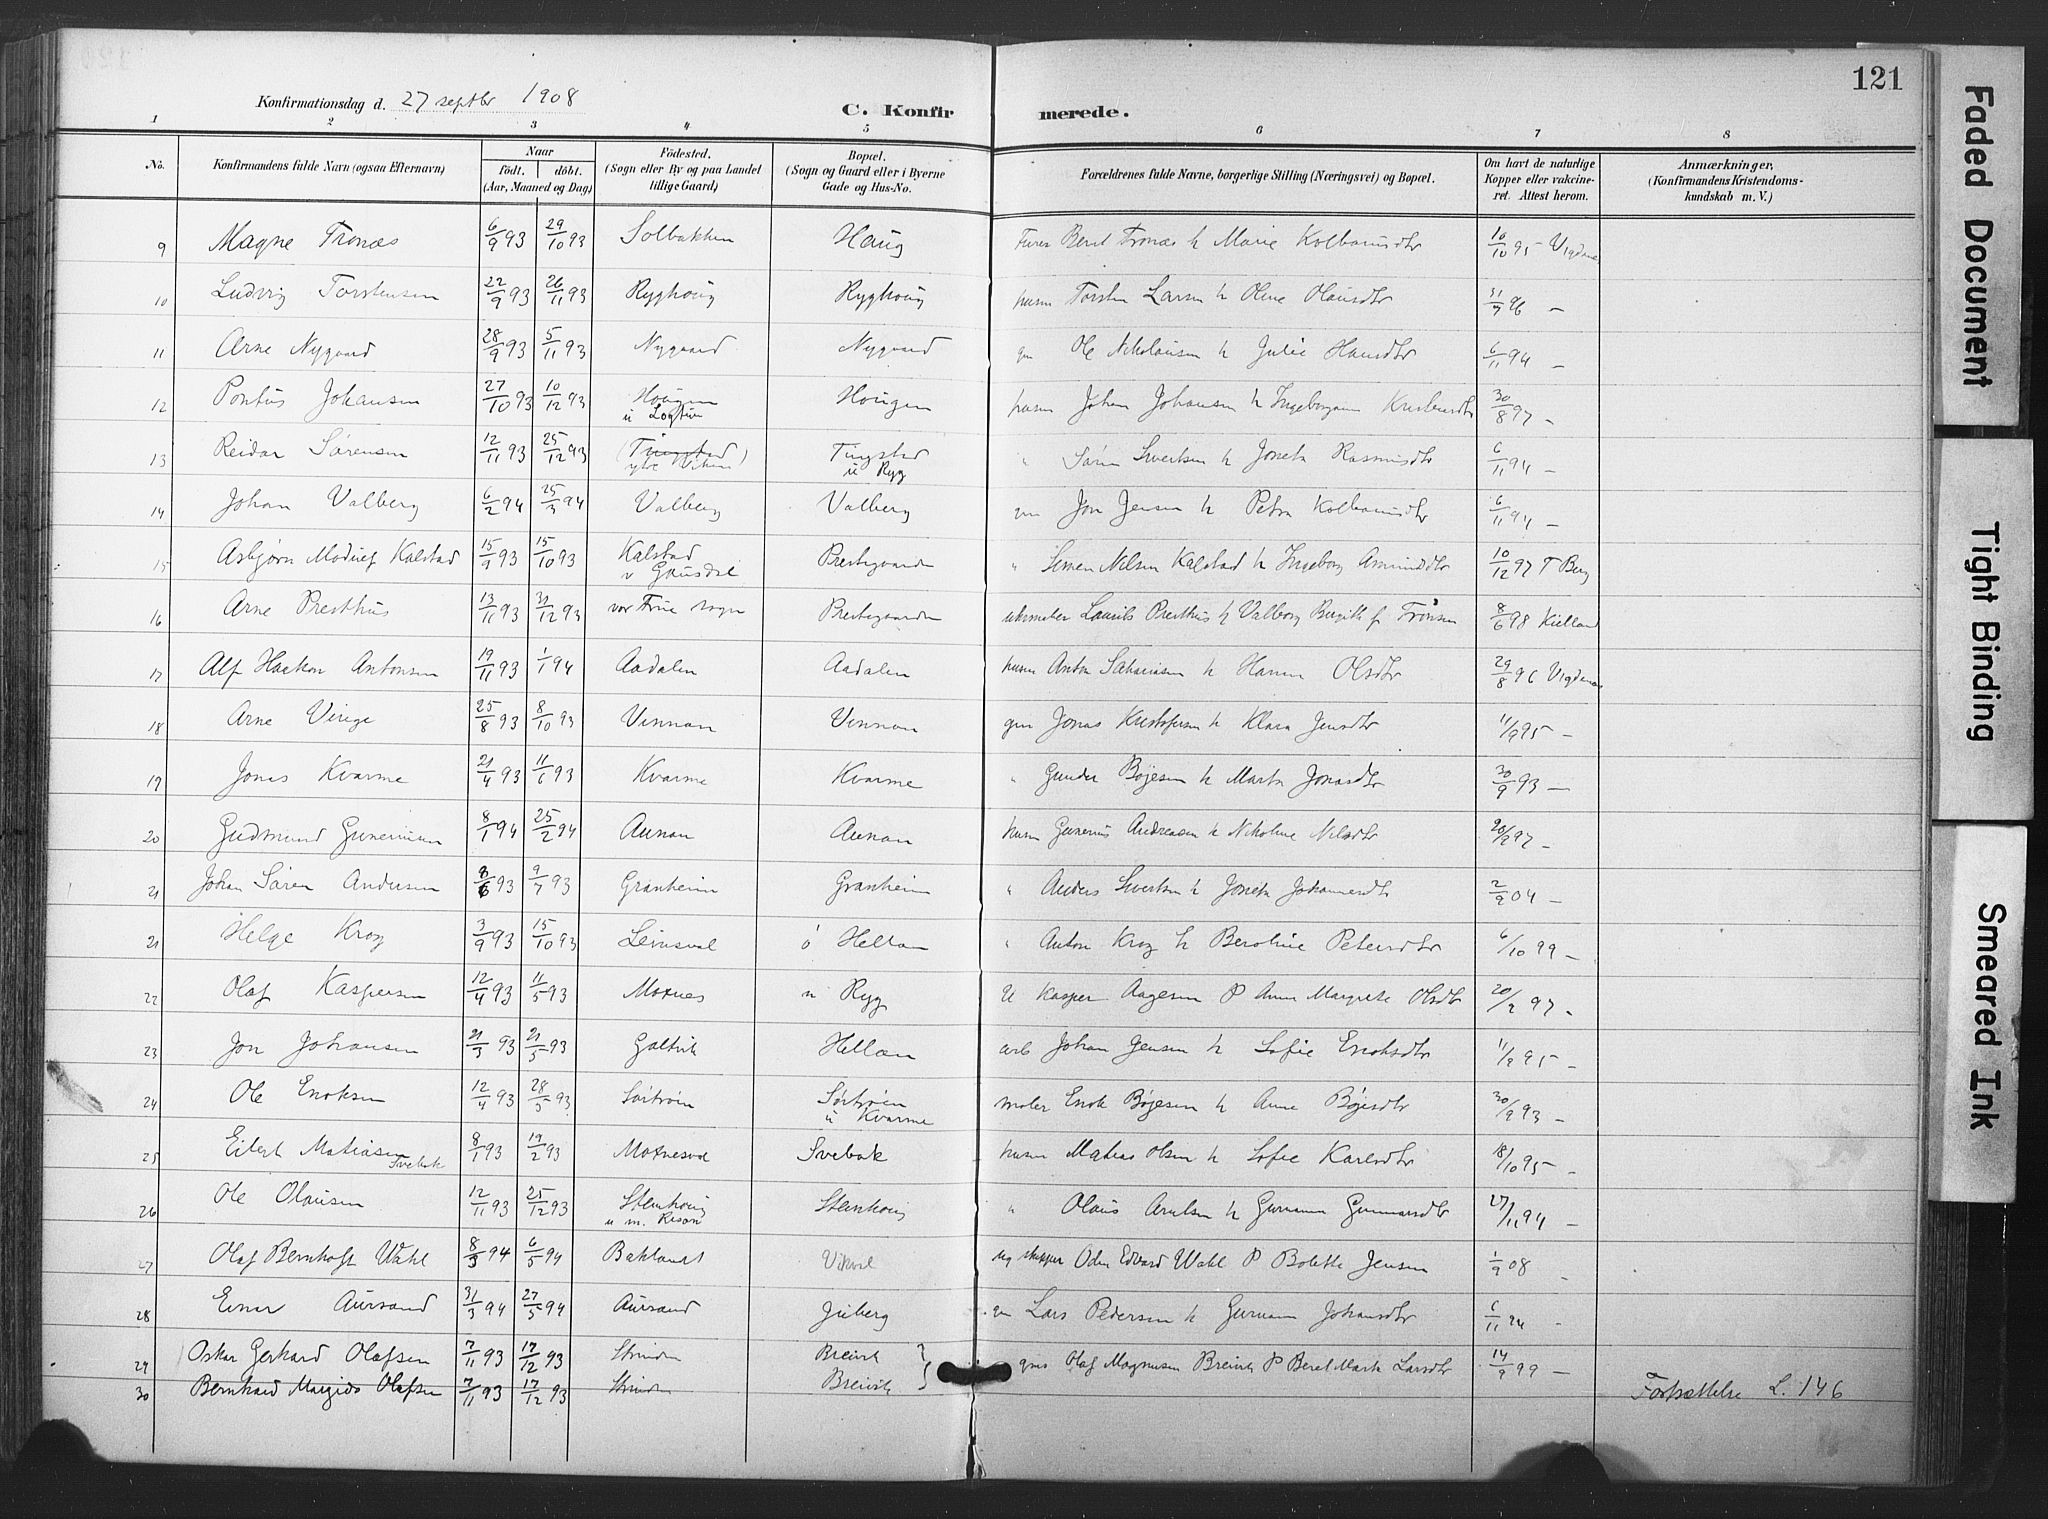 121
Konfirmationsdag d. 27 septbr 1908
C. Konfirmerede.
1 2 3 4 5 6 7 8
No. Konfirmandens fulde Navn (ogsaa Efternavn) Naar Födt. döbt. (Aar, Maaned og Dag) Födested. (Sogn eller By og paa Landet tillige Gaard) Bopæl. (Sogn og Gaard eller i Byerne Gade og Hus-No. Forældrenes fulde Navne, borgerlige Stilling (Næringsvei) og Bopæl. Om havt de naturlige Kopper eller vakcineret. Attest herom. Anmærkninger, (Konfirmandens Kristendomskundskab m. V.)
9 Magne Tronæs 6/9 93 29/10 93 Solbakken Haug Beret Tronæs h Marie 10/10 95 Vigdenes
10 Ludvig Torstensen 22/9 93 26/11 93 Ryghoug Ryghoug husm Torsten Larsen h Oline Olausdtr 31/7 96 —
11 Arne Nygaard 28/9 93 5/11 93 Nygaard Nygaard gm Ole Nikolaisen h Julie Hansdtr 6/11 94 —
12 Pontus Johansen 27/10 93 10/12 93 Hougen u Logtun Hougen husm Johan Johansen h 30/8 97 -
13 Reidar Sørensen 12/11 93 25/12 93 (Tingstad) ytre Viken Tingstad u Ryg " Søren Sivertsen h Joneta Rasmusdtr 6/11 94 —
14 Johan Valberg 6/2 94 25/3 94 Valberg Valberg gm Jon Jensen h Petra 6/11 94 —
15 Asbjørn Kalstad 15/9 93 15/10 93 Kalstad v Gausdal Prestegaarden " Simen Nilsen Kalstad h Ingeborg Amundsdtr 10/12 97 T Berg
16 Arne Presthus 13/11 93 31/12 93 vor Frue sogn Prestegaarden urmaker Laurits Presthus h Valborg 8/6 98 Kielland
17 Alf Haakon Antonsen 19/11 93 1/1 94 Aadalen Aadalen husm Anton Sakariasen h Hanna Olsdtr 29/8 96 Vigdenes
18 Arne Virige 25/8 93 8/10 93 Vinnan Vinnan gm Jonas Kristofersen h Klara Jensdtr 11/9 95 —
19 Jonas Kvarme 21/4 93 11/6 93 Kvarme Kvarme " Gunder Bøjesen h Marta Jonasdtr 30/9 93 —
20 Gudmund Guneriusen 8/1 94 25/2 94 Aunan Aunan husm Gunerius Andreasen h Nikoline Nilsdtr 20/9 97 —
21 Johan Søren Andersen 8/6 93 9/7 93 Granheim Granheim " Anders Sivertsen h Joneta Johannesdtr 2/9 04 —
21 Helge Krog 3/9 93 15/10 93 Leinsval ö Hellan " Anton Krog h Beroline Petersdtr 6/10 99 —
22 Olaf Kaspersen 12/4 93 11/5 93 Moxnes u Ryg U Kasper Aagesen P Anne Margrete Olsdtr 20/9 97 -
23 Jon Johansen 21/3 93 21/5 93 Galtvik Hellan arb Johan Jensen h Sofie Enoksdtr 11/9 95 —
24 Ole Enoksen 12/4 93 28/5 93 Sørtrøen Sørtrøen u Kvarme maler Enok Bøjesen h Anne Bøjesdtr 30/9 93 —
25 Eilert Matiasen Svebak 8/1 93 19/2 93 Moxnesval Svebak husm Matias Olsen h Sofie Karlsdtr 18/10 95 —
26 Ole Olausen 12/11 93 25/12 93 Stenhoug u m. Risan Stenhoug " Olaus Arntsen h Guruanna Gunnarsdtr 27/11 94 —
27 Olaf Bernhoft Wahl 8/3 94 6/5 94 Baklandet Vikval skipper Odin Edvard Wahl P Bolette Jensen 1/9 08 —
28 Einar Aursand 31/3 94 27/5 94 Aursand Juberg gm Lars Pedersen h Guruanna Johansdtr 6/11 94 -
29 Oskar Gerhard Olafsen 7/11 93 17/12 93 Strinden Breivik gm Olaf Magnusen Breivik P Beret Marta Larsdtr 14/9 99 —
30 Bernhard Margido Olafsen 7/11 93 17/12 93 Strinden Breivik
Fortsættelse L. 146
Faded Document
Tight Binding
Smeared Ink